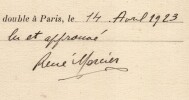 double à Paris, le 14 Avril 1923
lu et approuvé
René Mercier